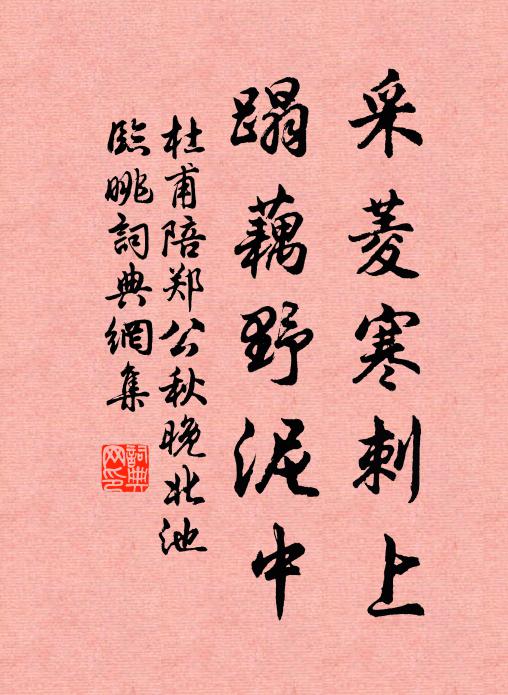 采菱寒刺上
蹋藕野泥中
杜甫陪郑公秋晚北池
临眺詞典網集
詞典
网印